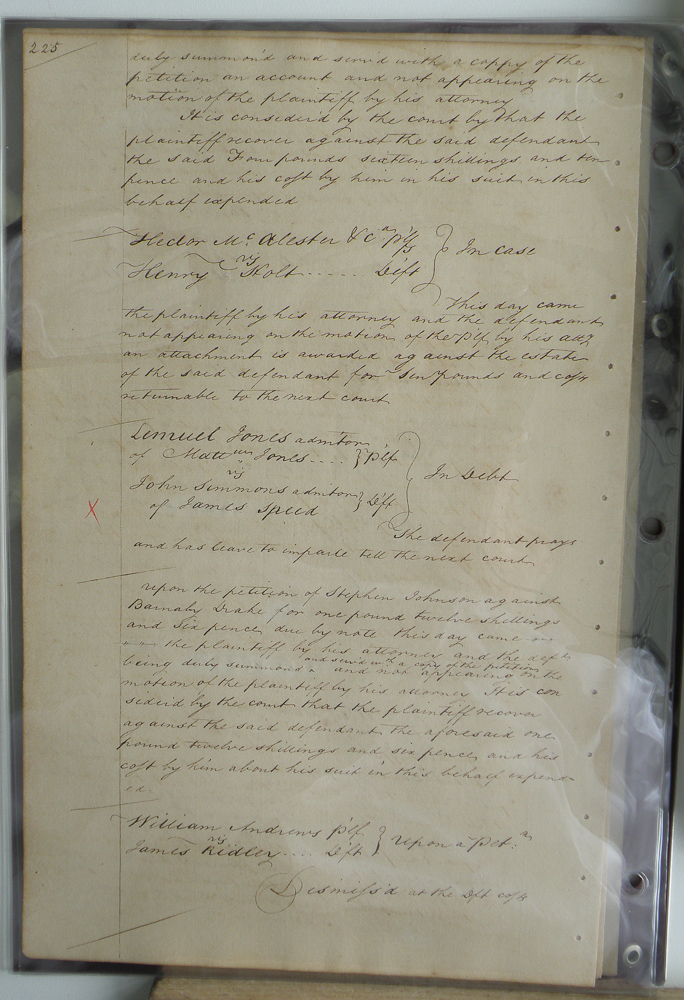 225
duly summon'd and serv'd with a coppy of the
petition an account and not appearing on the
motion of the plaintiff by his attorney
It is consider'd by the court by that the
plaintiff recover against the said defendant
the said Four pounds sixteen shillings and ten
pence and his cost by him in his suit in this
behalf expended
Hector Mc Alester & Ca Plfs
vs
Henry Holt ..... Deft
In case
This day came
the plaintiff by his attorney and the defendant
not appearing on the motion of the Plf by his atty
an attachment is awarded against the estate
of the said defendant for Ten pounds and cost
returnable to the next court
Lemuel Jones admitor
of Matthew Jones .... Plf
vs
John Simmons admitor
of James Speed Deft
In Debt
The defendant prays
and has leave to imparle tell the next court
X
upon the petition of Stephen Johnson against
Barnaby Drake for one pound twelve shellings
and Six pence due by note this day came
the plaintiff by his attorney and the deft
and serv'd with a copy of the petition
being duly summond and not appearing on the
motion of the plaintiff by his attorney It is con
siderd by the court that the plaintiff recover
against the said defendant the aforesaid one
pound twelve shillings and six pence and his
cost by him about his suit in this behalf expend
ed.
William Andrews Plf
vs
James Ridley .... Deft
upon a Petn
Dismiss'd at the Dft cost